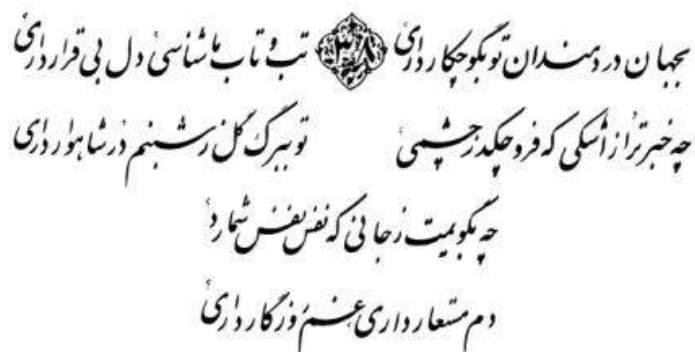 بجهان دردمندان تو بگو چکار داری ۳۸ تب و تاب ما شناسی دل بی قرار داری
چه خبر ترا ز اشکی که فرو چکد ز چشمی تو ببرگ گل ز شبنم در شاهوار داری
چه بگویمت ز جانی که نفس نفس شمارد
دم مستعار داری غم روزگار داری